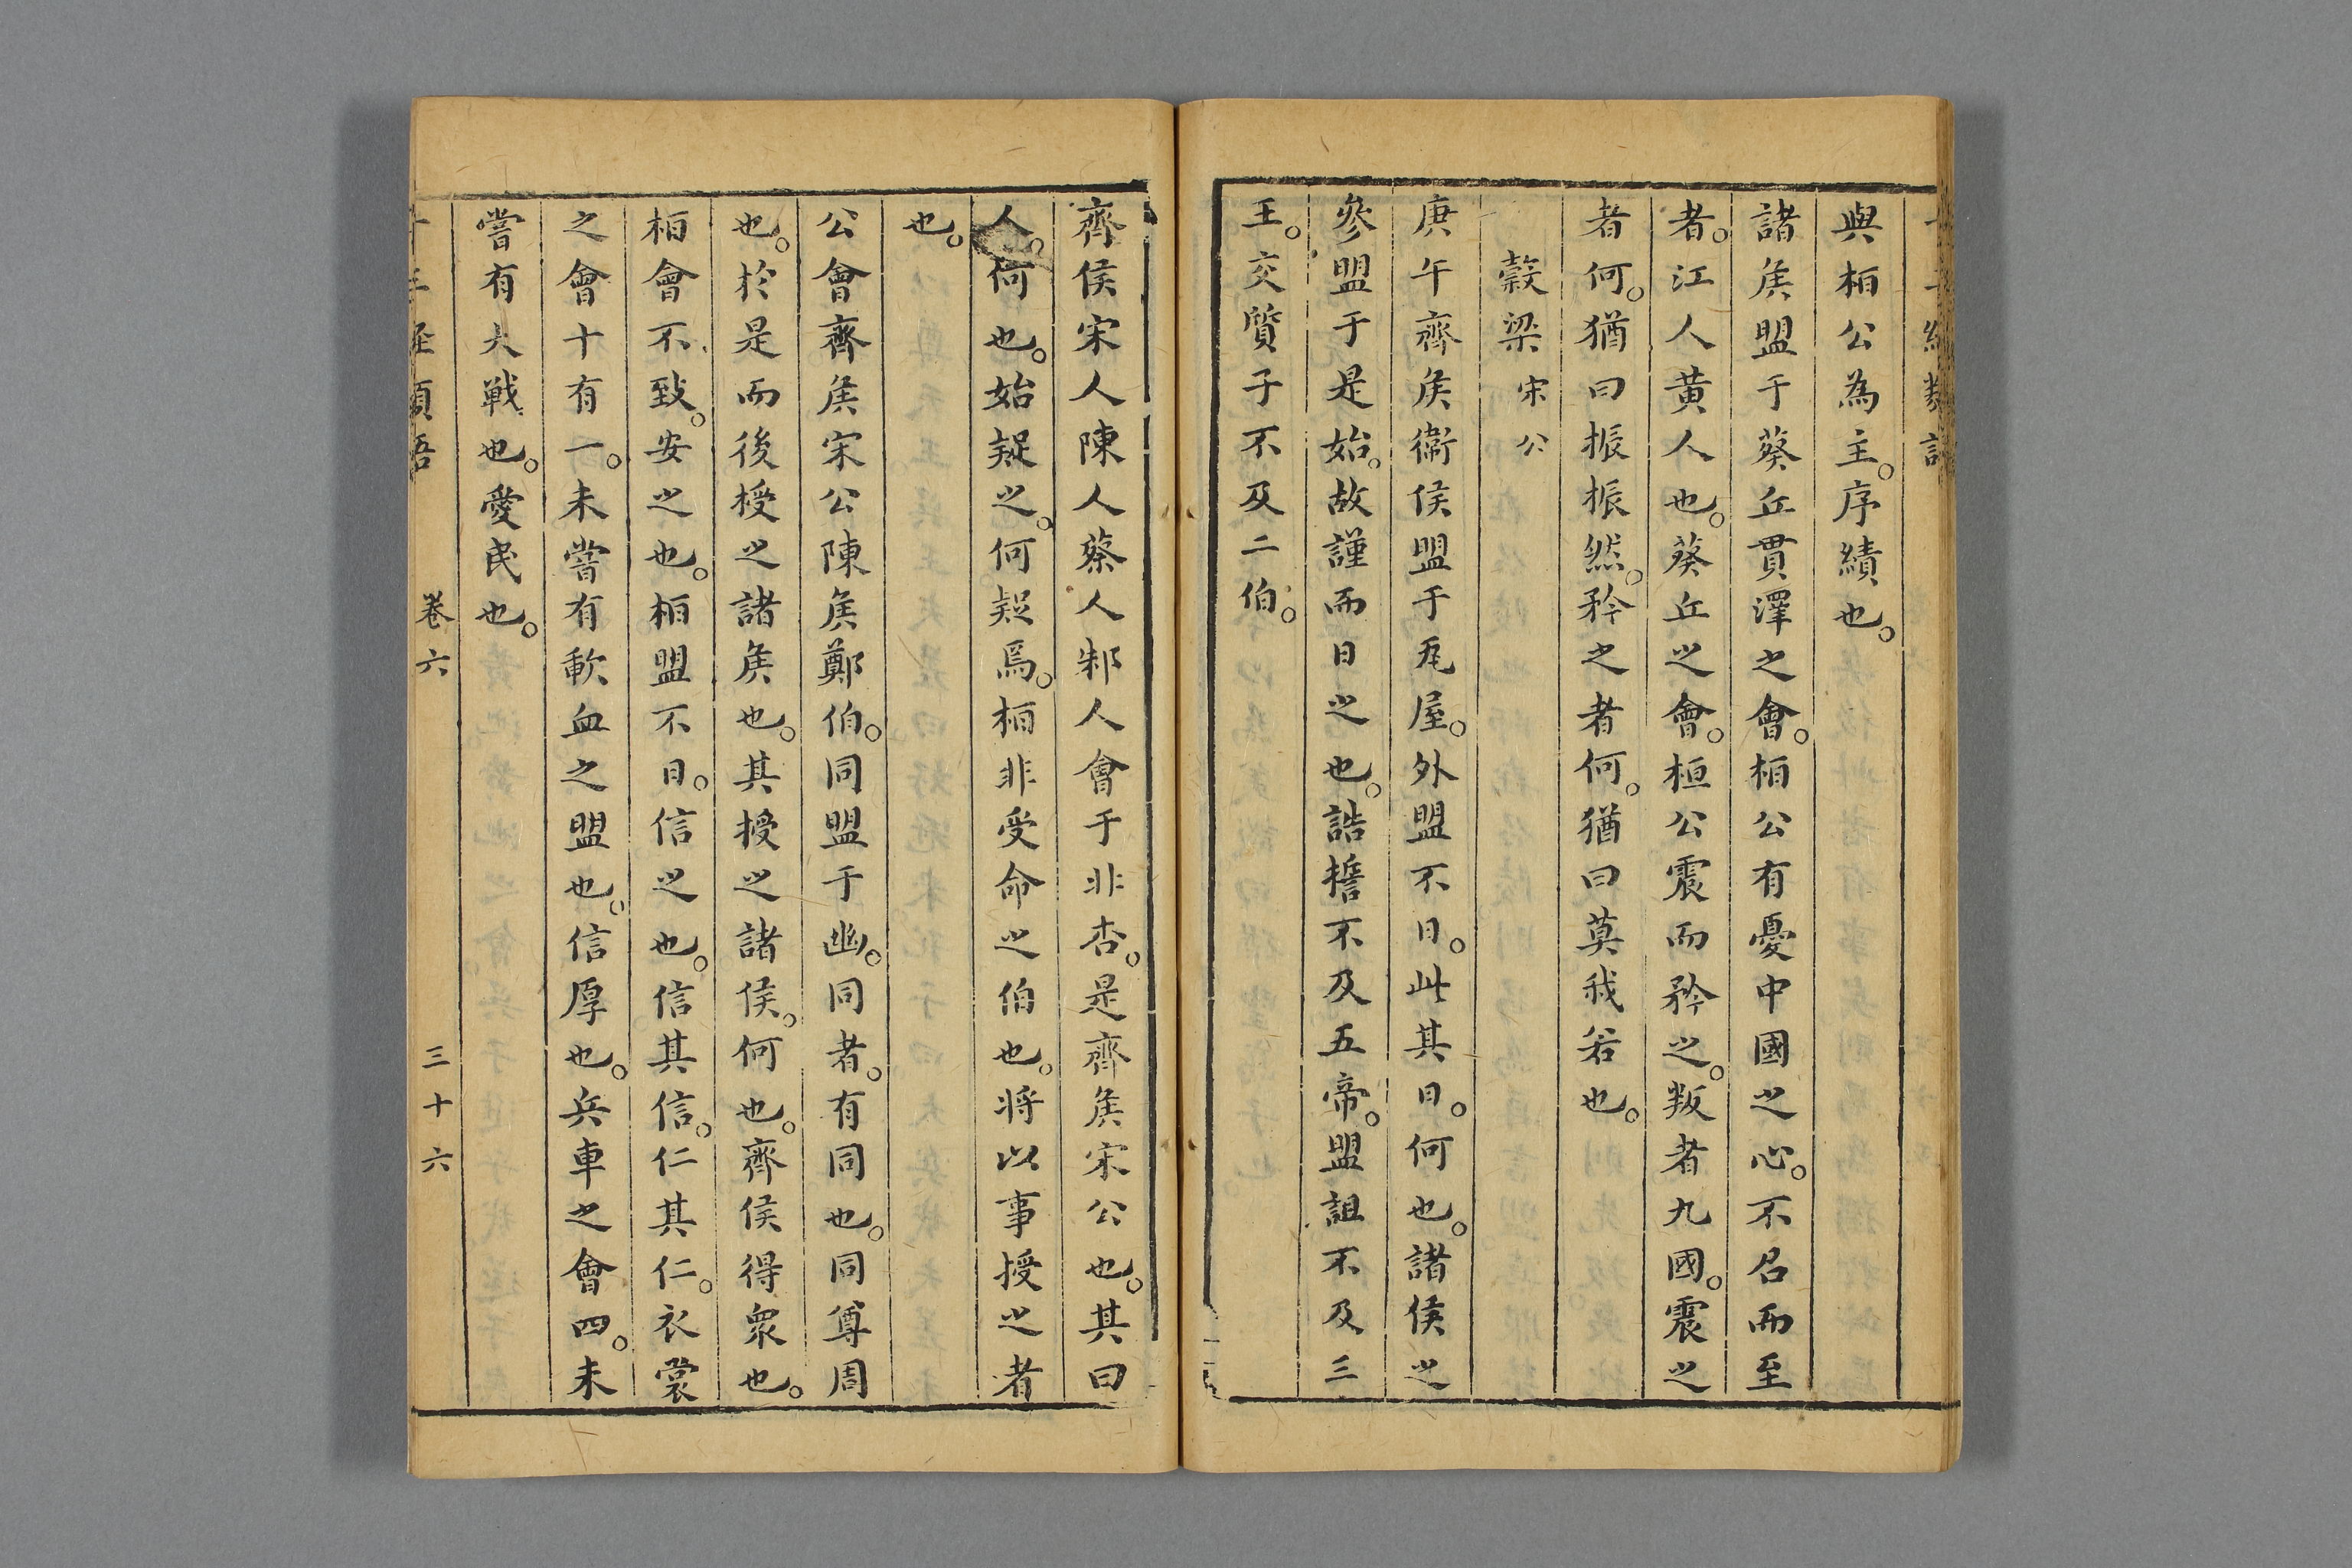 與桓公為主。序績也。
諸矦盟于葵丘貫澤之會。桓公有憂中國之心。不召而至
者。江人黄人也。葵丘之會。桓公震而矜之。叛者九國。震之
者何。猶曰振振然。矜之者何。猶曰莫我若也。
穀梁宋公
庚午齊矦衛侯盟于瓦屋。外盟不日。此其日。何也。諸侯之
參盟于是始。故謹而日之也。誥誓不及五帝。盟詛不及三
王。交質子不及二伯。
齊侯宋人陳人蔡人邾人會于北杏。是齊矦宋公也。其曰
人。何也。始疑之。何疑焉。桓非受命之伯也。将以事授之者
也。
公會齊矦宋公陳矦鄭伯。同盟于幽。同者。有同也。同尊周
也。於是而後授之諸矦也。其授之諸侯。何也。齊侯得衆也。
桓會不致。安之也。桓盟不日。信之也。信其信。仁其仁。衣裳
之會十有一。未嘗有歃血之盟也。信厚也。兵車之會四。未
嘗有大戰也。愛民也。
卷六
三十六